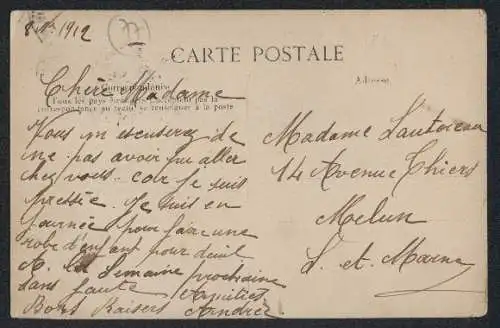 1912
CARTE POSTALE
Correspondance
Adresse
Tous les pays étrangers n'acceptent pas la
correspondance au recto, se renseigner à la poste
Chère Madame
Vous m'escuserez de
ne pas avoir pu aller
chez vous. car je suis
pressée. Je suis en
journée pour faire une
robe d'enfant pour deuil
A la Semaine prochaine
sans faute Amitiés
Bons Baisers Andrée
Madame
14 Avenue Thiers
Melun
S. et. Marne